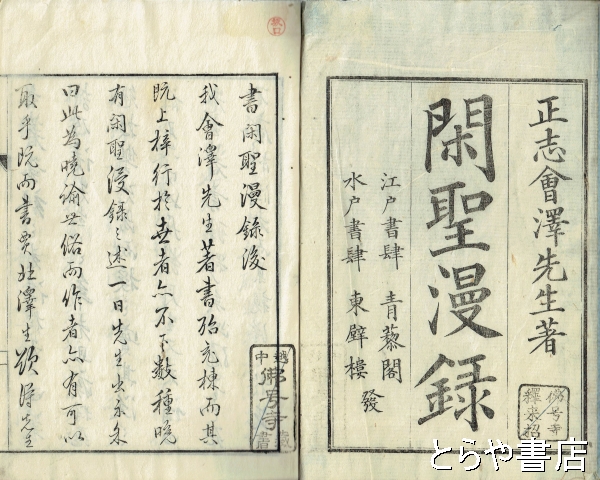 正志會澤先生著
閑聖漫録
江戸書肆 青藜閣
水戸書肆 東壁樓
發
佛号寺
釋来招
書閑聖漫録後
我會澤先生著書殆充棟而其
既上梓行於世者亦不下數種晩
有閑聖漫録之述一日先生出示余
曰此為曉諭世俗而作者亦有可以
取乎既而書賈北澤生欲得先生
中越
佛号寺
書蔵
とらや書店